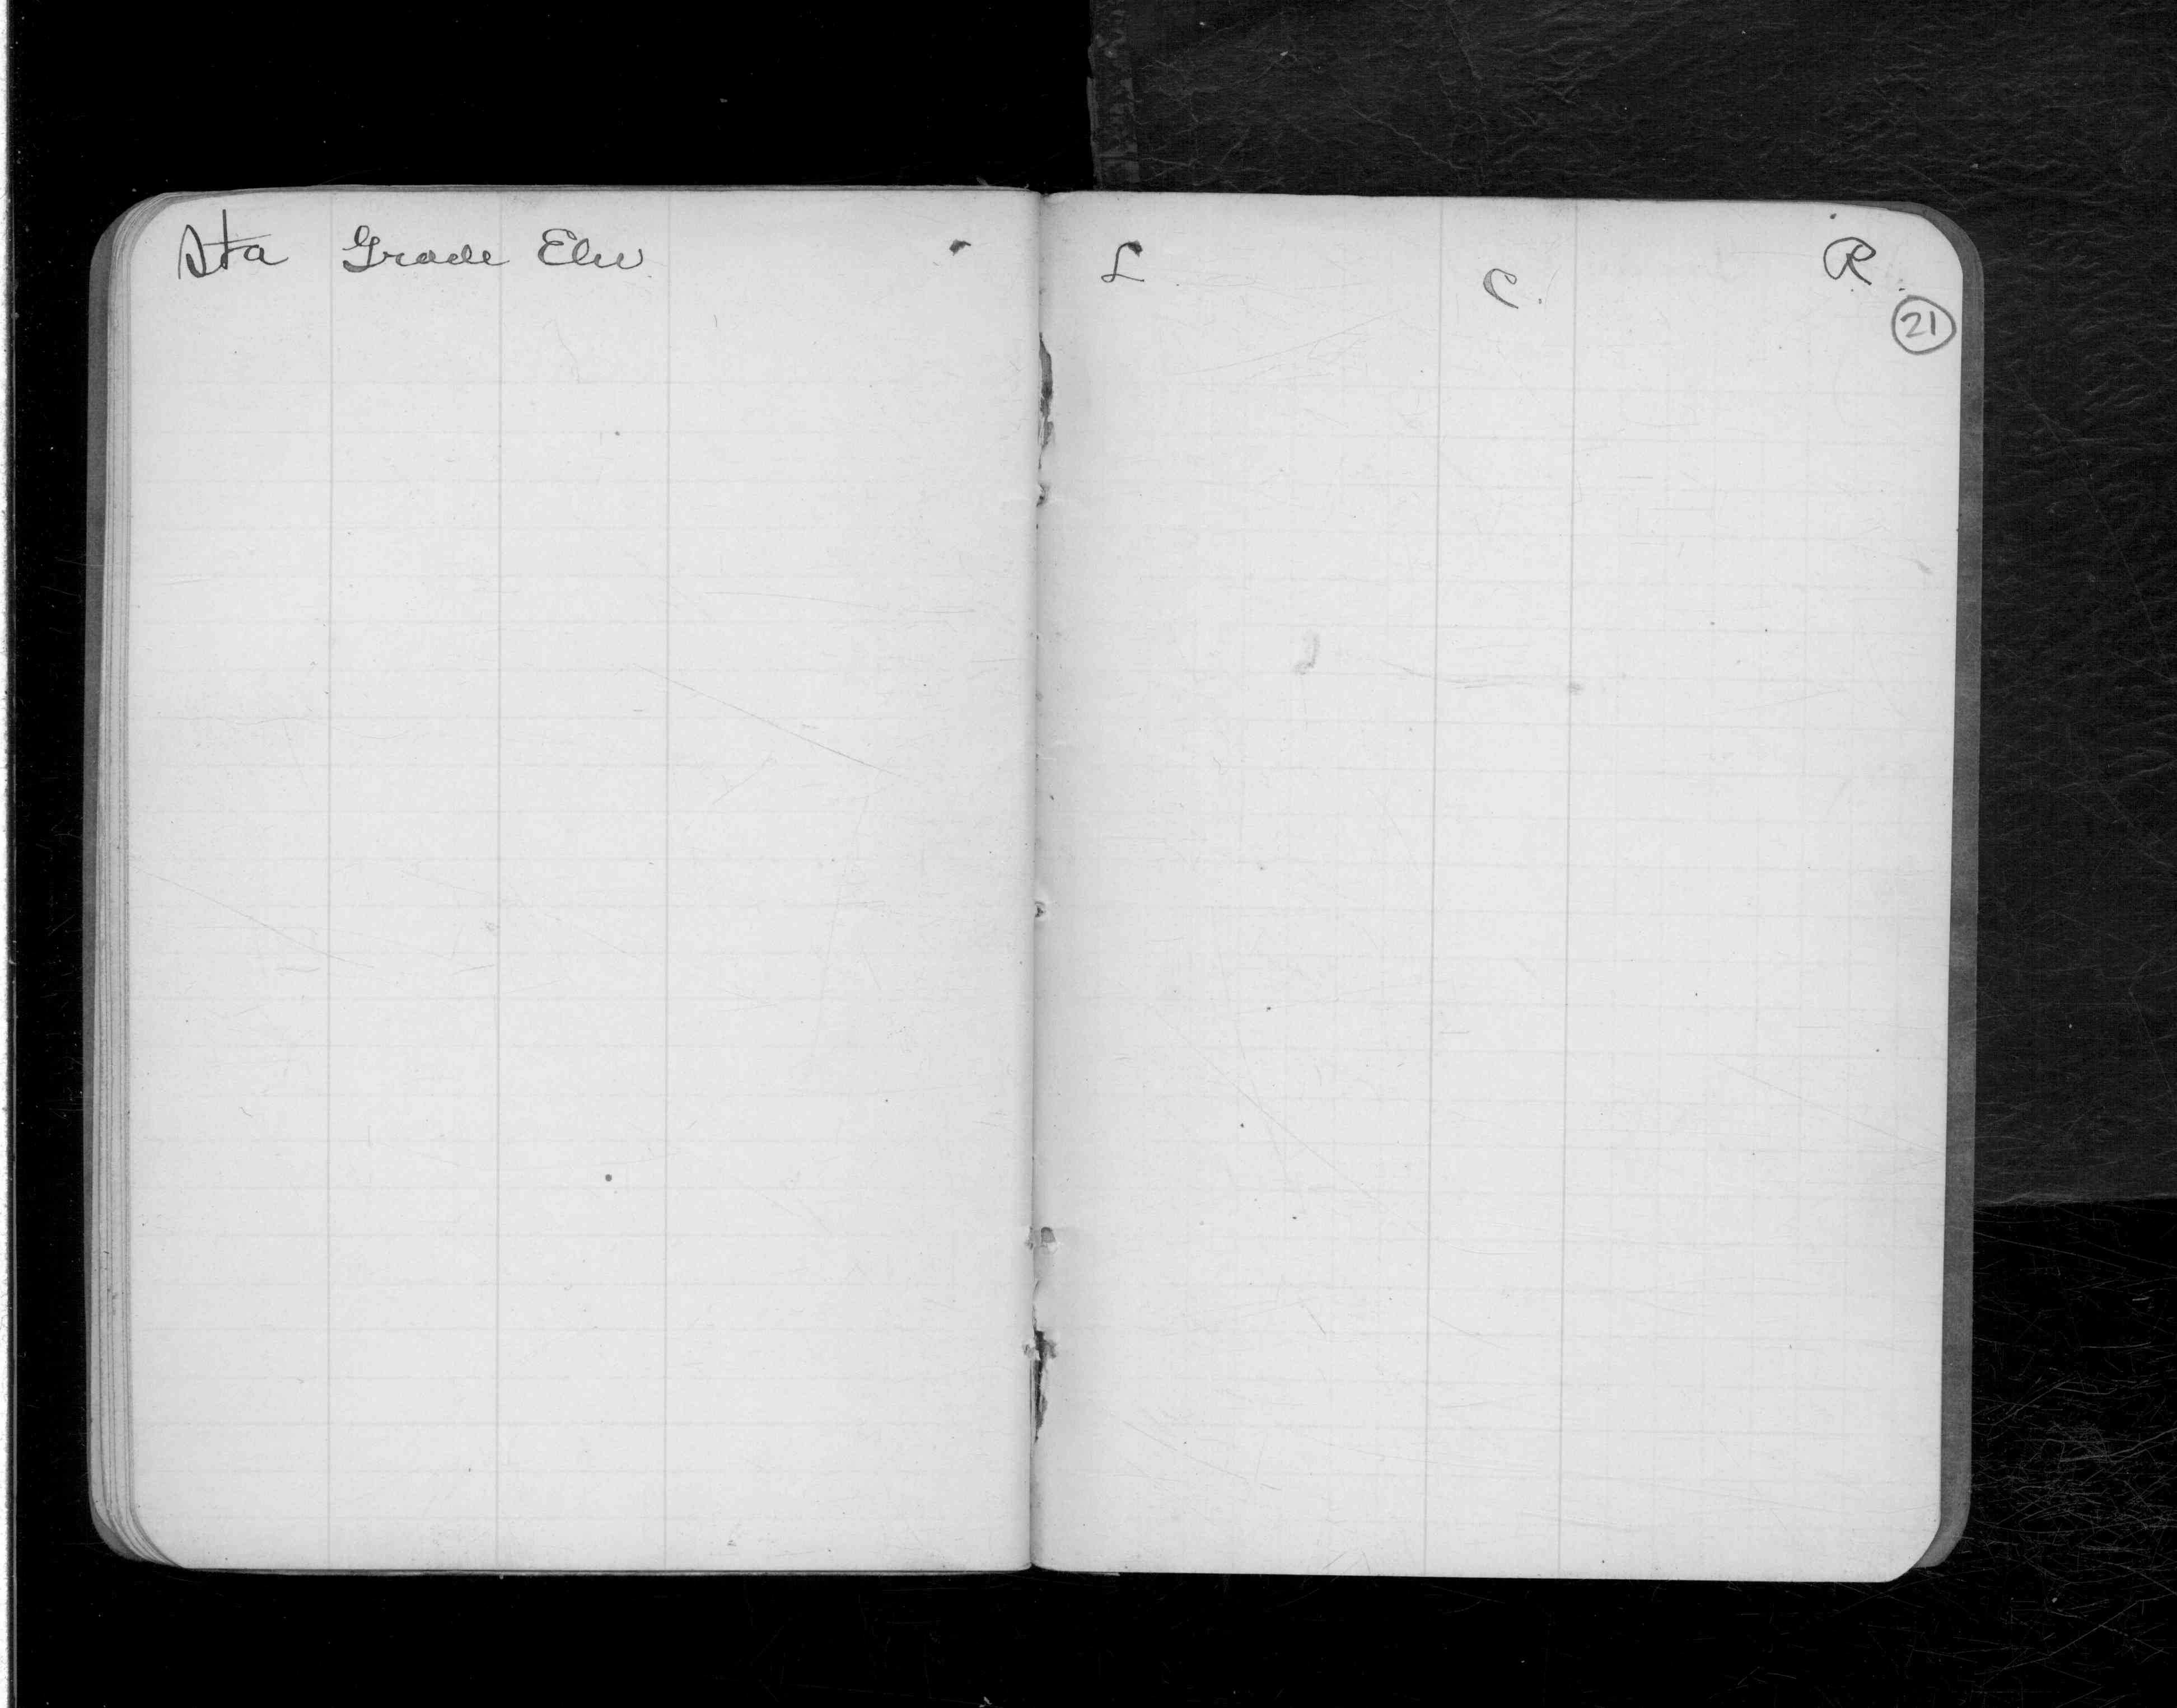 Sta Grade Elev
L C. R.
21